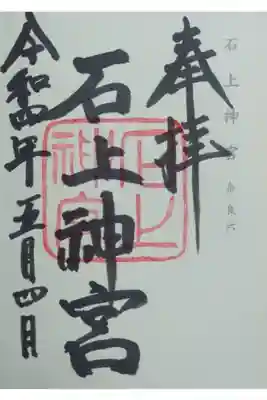 石上神宮 奈良六
奉拝
石上神宮
令和四年五月四日
石上
神宮